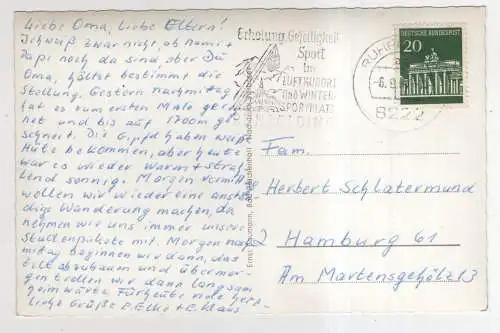 Liebe Oma, liebe Eltern!
Ich weiß zwar nicht, ob Mami +
Papi noch da sind, aber Du
Oma, hältst bestimmt die
Stellung. Gestern nachmittag
hat es zum ersten Male gereg-
net und bis auf 1700m ge-
schneit. Die Gipfel haben weiße
Hüte bekommen, aber heute
war es wieder warm + strah-
lend sonnig. Morgen vormittag
wollen wir wieder eine anstän-
dige Wanderung machen, da
nehmen wir uns immer unsere
mit. Morgen nach-
mittag beginnen wir dann, das
Zelt abzubauen und übermor-
gen trollen wir dann langsam
heimwärts. Für heute viele herz-
liche Grüße E. Elke + E. Klaus
Erholung Geselligkeit
Sport
im
LUFTKURORT
und WINTER-
SPORTPLATZ
RUHPOLDING
8222
DEUTSCHE BUNDESPOST
20
Fam.
Herbert Schlatermund
2 Hamburg 61
Am Martensgehölz 13